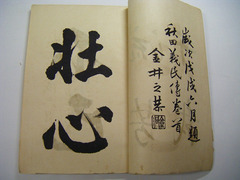 歳次戊戌六月題
秋田義民傳巻首
金井之恭
壮心